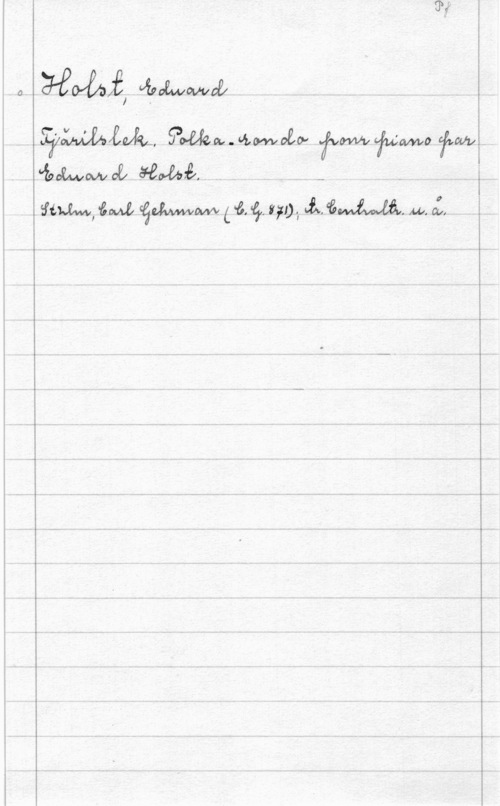 Pf
Holst, Eduard
Fjärilslek. Polka-rondo pour piano par
Eduard Holst.
Sthlm, Carl Gehrman (C. G. 871), tr. Centraltr. u. å.